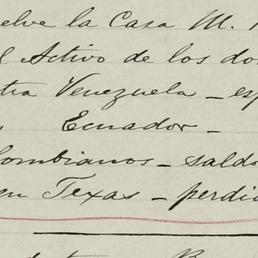 elve la Casa M.
l Activo de los do
tra Venezuela – esp
Ecuador –
ombianos – saldo
en Texas – perdid